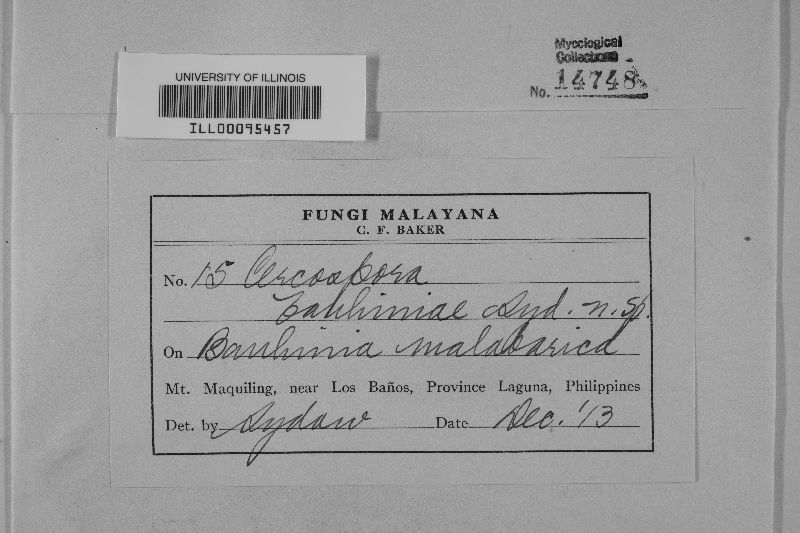 UNIVERSITY OF ILLINOIS
ILL00095457
Mycological
Collections
No. 14748
FUNGI MALAYANA
C. F. BAKER
No. 15 Cercospora
bauhiniae Syd. n. sp.
On Bauhinia malabarica
Mt. Maquiling, near Los Baños, Province Laguna, Philippines
Det. by Sydow Date Dec. '13